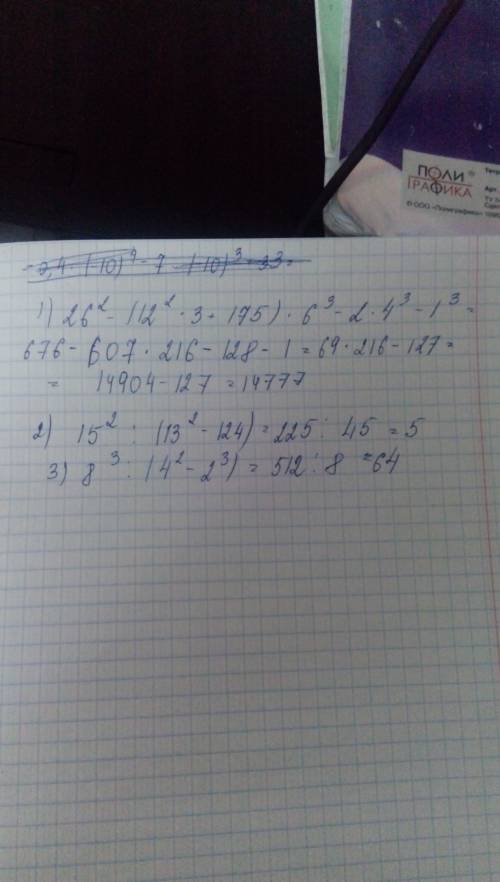 ПОЛИ
ГРАФИКА
Тетр
Арт.
© ООО «Полиграфика»
1) 26² - (12² · 3 + 175) · 6³ - 2 · 4³ - 1³ =
676 - 607 · 216 - 128 - 1 = 69 · 216 - 127 =
= 14904 - 127 = 14777
2) 15² : (13² - 124) = 225 : 45 = 5
3) 8³ : (4² - 2³) = 512 : 8 = 64